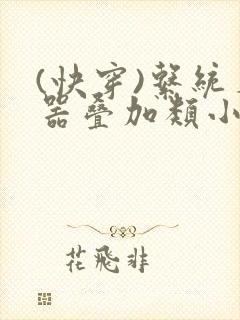 (快穿)系統
器疊加類小
花飛非